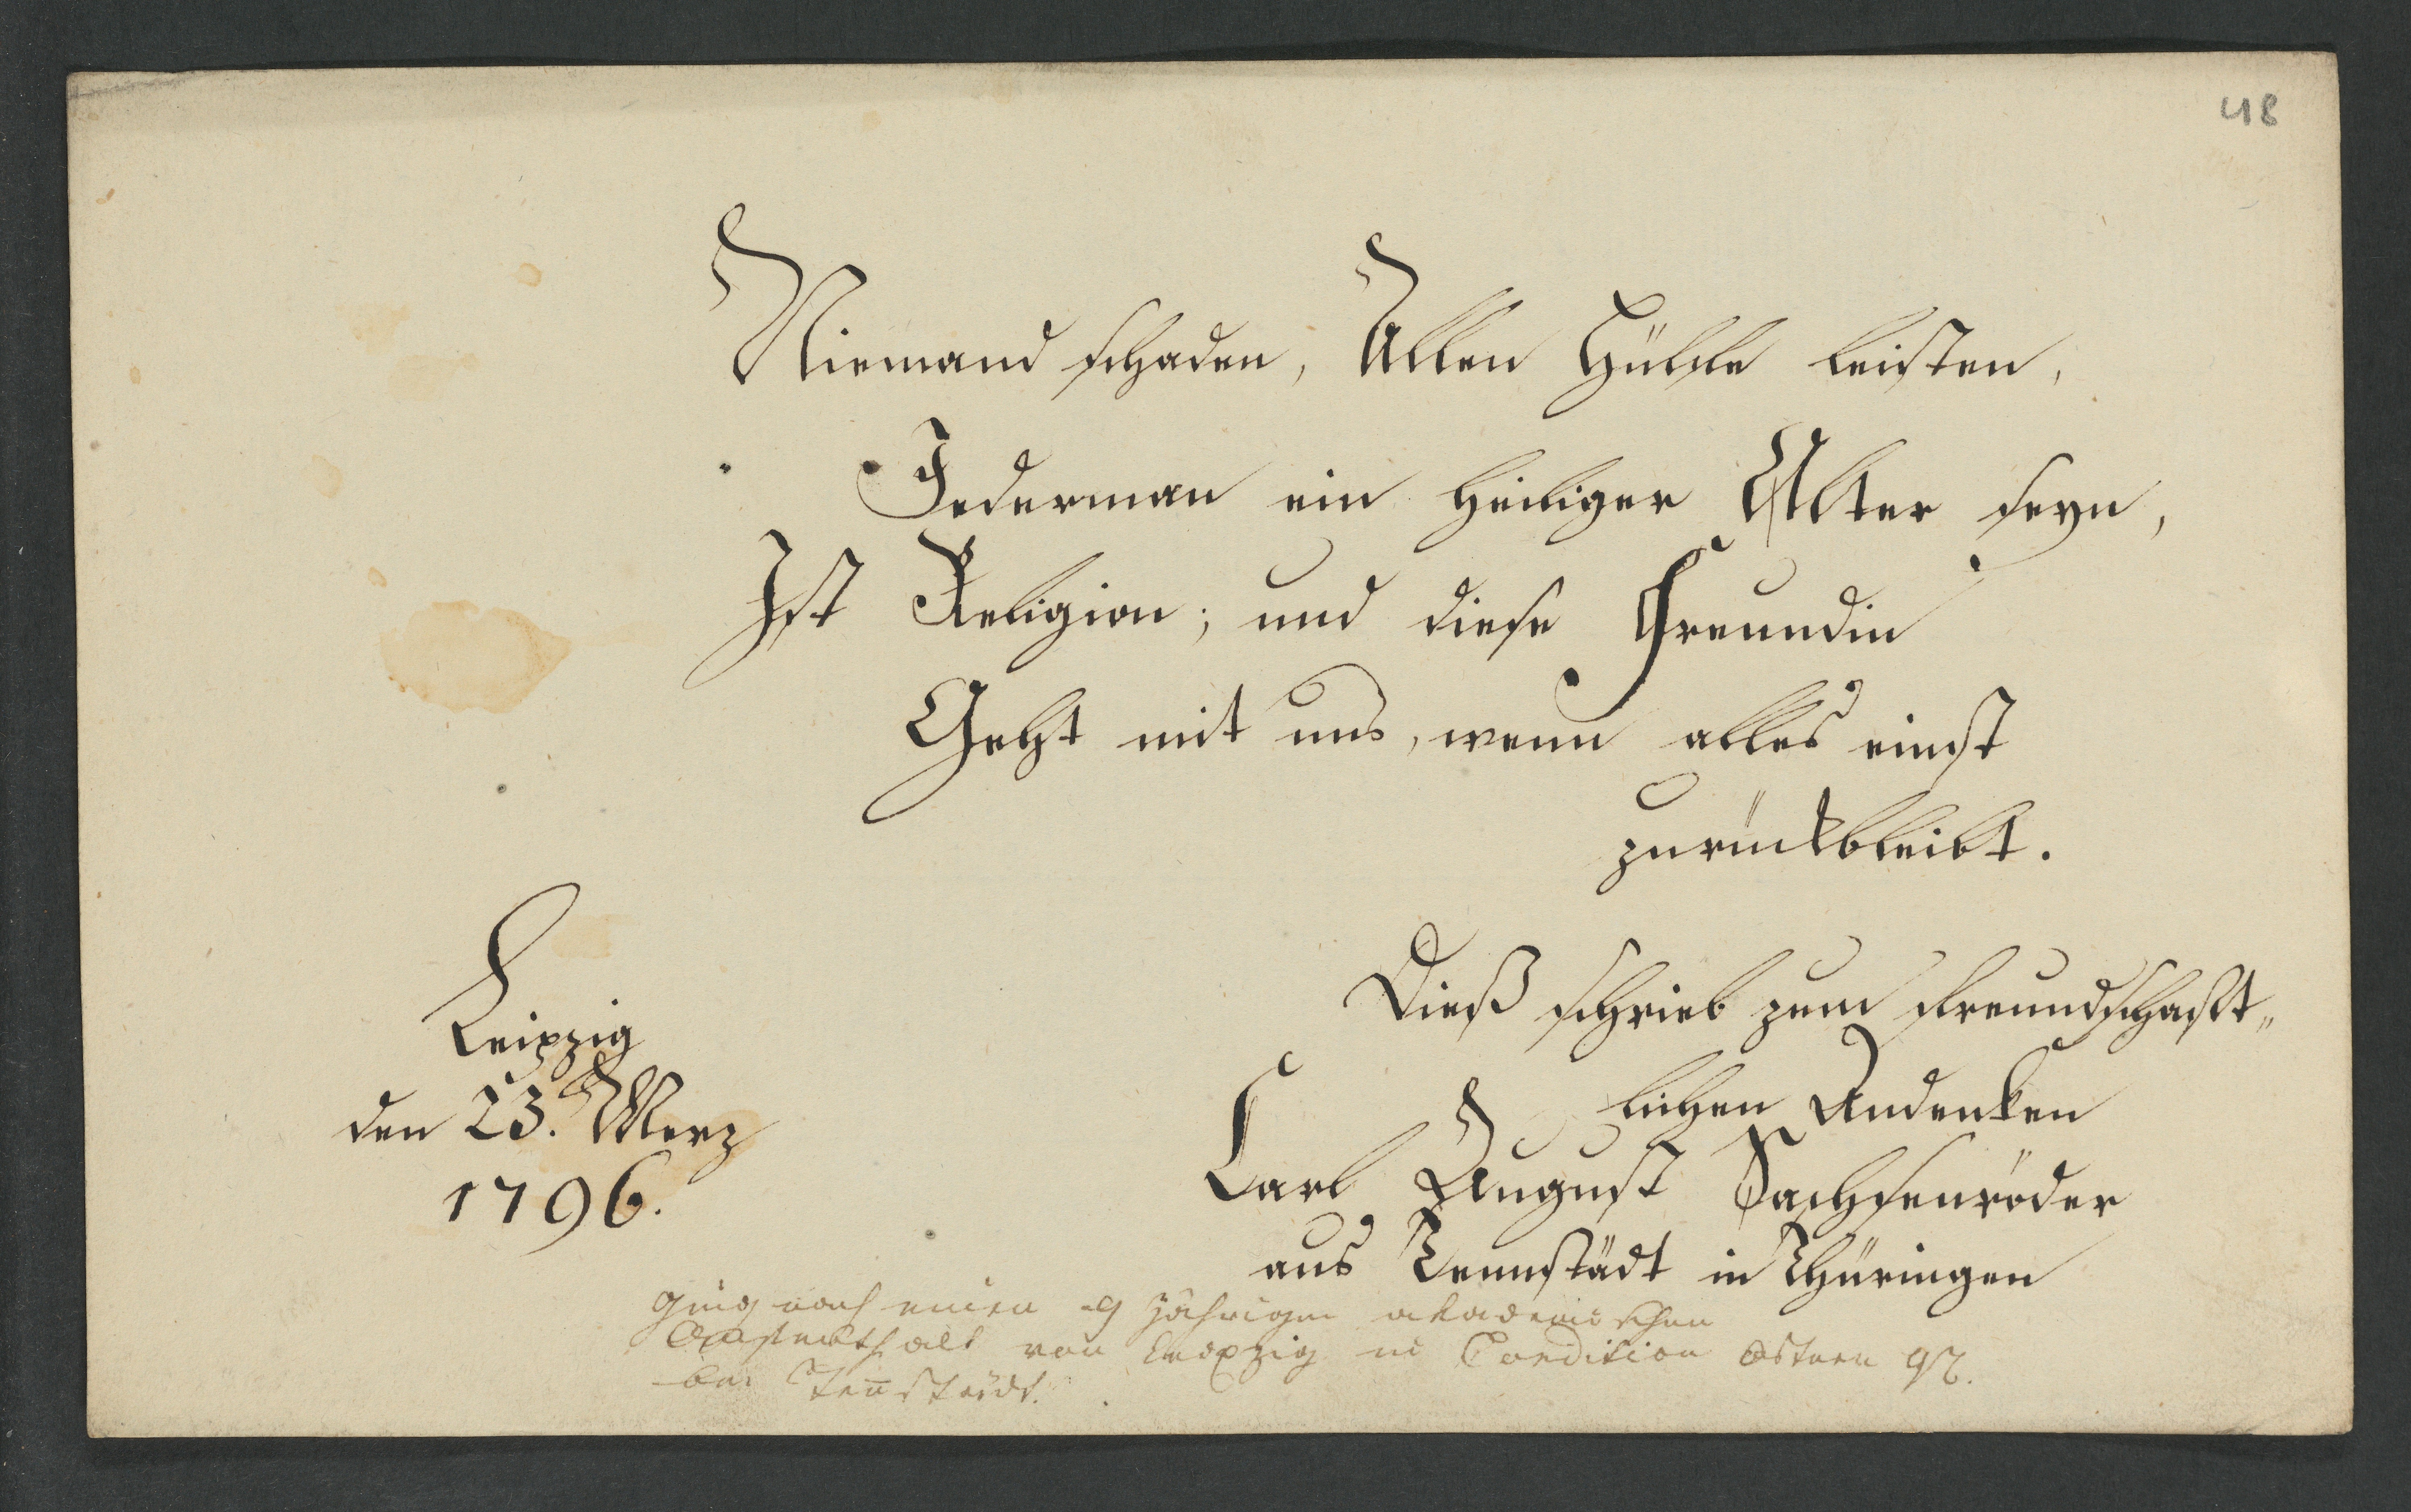 48
Niemand schaden, Allen Hülfe leisten,
Jederman ein heiliger Altar seyn,
Ist Religion; und diese Freundin
Geht mit uns, wenn alles einst
zurückbleibt.
Leipzig
den 23. Merz
1796.
Dieß schrieb zum freundschaft„
lichen Andenken
Carl August Sachsenröder
aus Tennstädt in Thüringen
ging nach einen jährigen akademischen
Aufenthalt von Leipzig in Condition Ostern 97.
bei Ten̄städt.